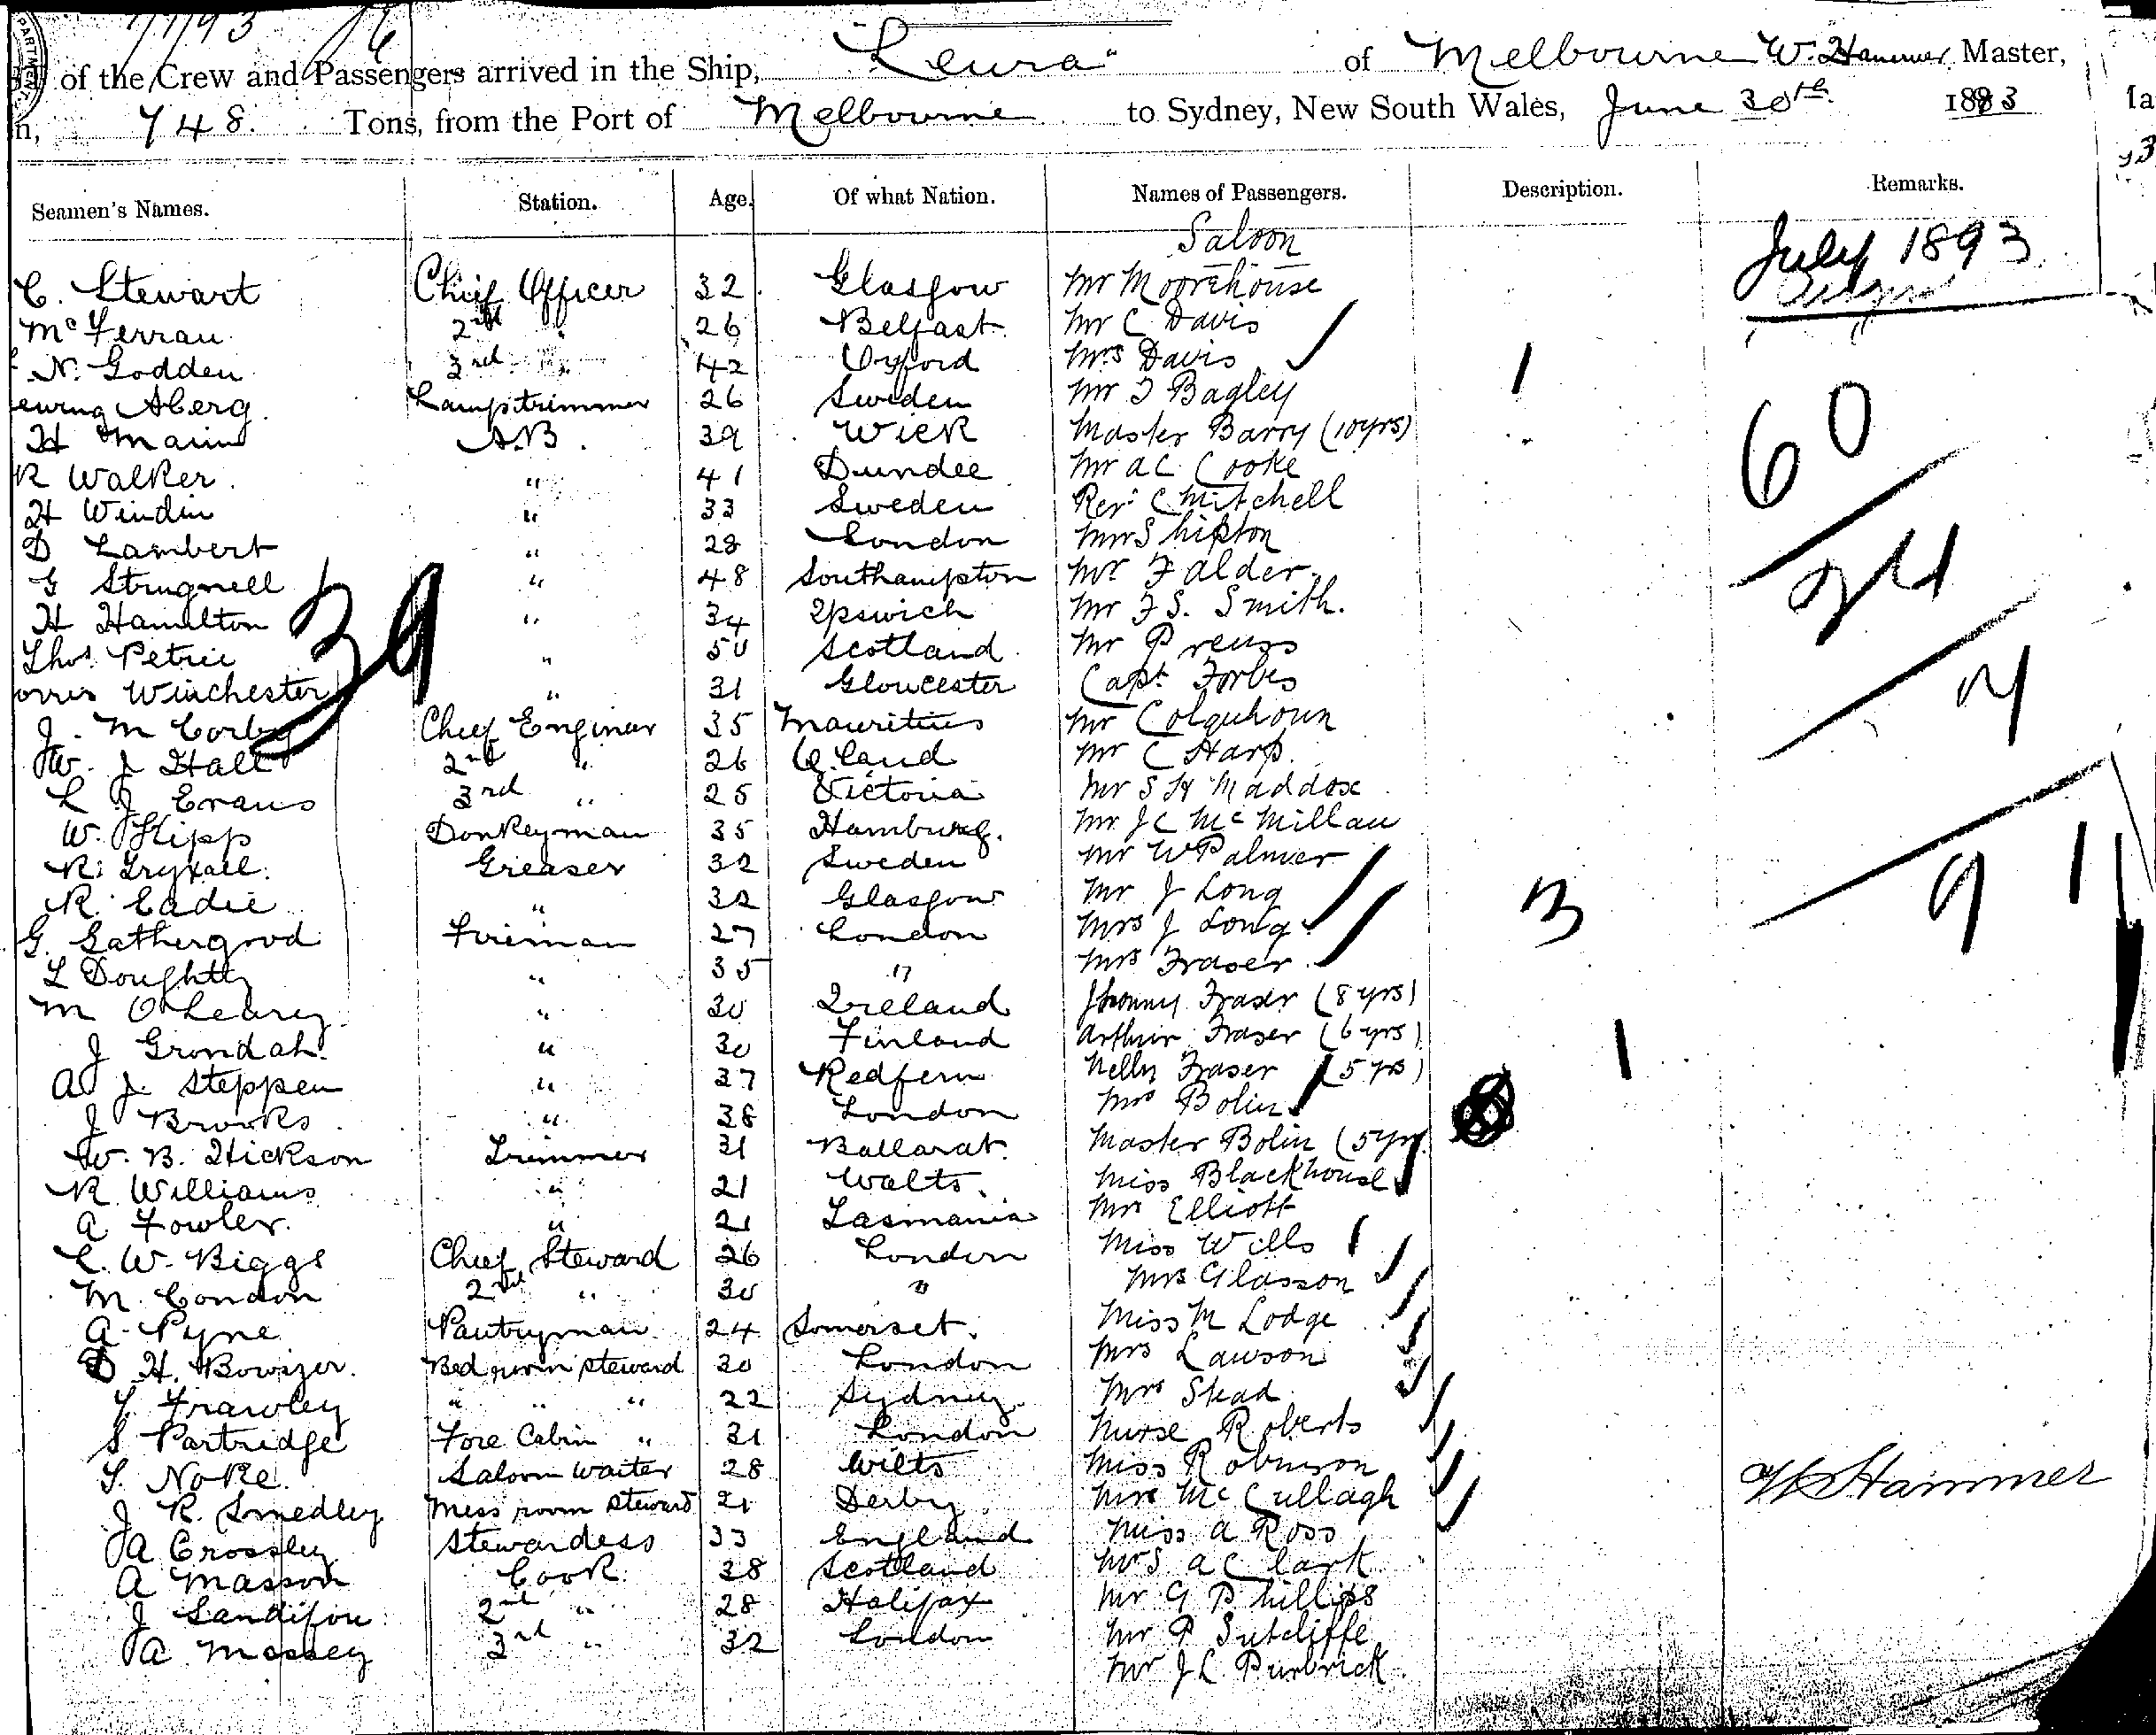 7/7/93
of the Crew and Passengers arrived in the Ship, "Leura" of Melbourne W. Hammer, Master,
748. Tons, from the Port of Melbourne to Sydney, New South Wales, June 30th 1893
Seamen's Names. Station. Age. Of what Nation. Names of Passengers. Description. Remarks.
Saloon
July 1893
C. Stewart Chief Officer 32 Glasgow Mr Moorehouse
McFerran 2nd " 26 Belfast Mr C Davis
N. Godden 3rd " 42 Oxford Mrs Davis 1
Aberg. Lamptrimmer 26 Sweden Mr T Bagley
H Mann AB. 39 Wick Master Barry (10yrs) 60
R Walker. " 41 Dundee Mr A C Cooke
H Windin " 33 Sweden Revd C Mitchell
D Lambert " 28 London Mrs Shipton
G Strugnell " 48 Southampton Mr Falder. 24
H Hamilton " 34 Ipswich Mr F S. Smith.
39
Thos Petrie " 50 Scotland Mr Preuss
Winchester " 31 Gloucester Capt Forbes
J. M Corby Chief Engineer 35 Mauritius Mr Colquhoun
W. J Hall 2nd " 26 Q.land Mr C Harp.
L J Evans 3rd " 25 Victoria Mr S H Maddox
W. Hipp Donkeyman 35 Hamburg. Mr J C McMillan
R. Greaser 32 Sweden Mr W Palmer
R. Eadie " 32 Glasgow Mr J Long 3 91
G. Gathergood Fireman 27 London Mrs J Long
L Doughty " 35 " Mrs Fraser
M O'Leary " 30 Ireland Fraser (8 yrs)
J Grondah. " 30 Finland Arthur Fraser (6 yrs) 1
A J. Steppen " 37 Redfern Nelly Fraser (5 yrs)
J Brooks " 38 London Mrs Bolin
W. B. Hickson Trimmer 31 Ballarat. Master Bolin (5yrs
R Williams " 21 Walts. Miss Blackhouse
A Fowler. " 21 Tasmania Mrs Elliott
L. W. Biggs Chief Steward 26 London Miss Wills
M. Condon 2nd " 30 " Mrs Glasson
A. Pyne Pantryman 24 Somerset. Miss M Lodge
D H. Bowizer. Bed room steward 30 London Mrs Lawson
T. Frawley " " " 22 Sydney. Mrs Stead
S Partridge Fore Cabin " 31 London Nurse Roberts
T. Noke. Saloon Waiter 28 Wilts Miss Robinson
J R. Smedley Mess room steward 21 Derby Mrs McCullagh
W Hammer
A Crossley Stewardess 33 England Miss A Ross
A Masson Cook 38 Scotland Mrs A Clark
J Sandifou 2nd " 28 Halifax Mr G Phillips
A Massey 3rd " 32 London Mr P Sutcliffe
Mr J L Purbrick.